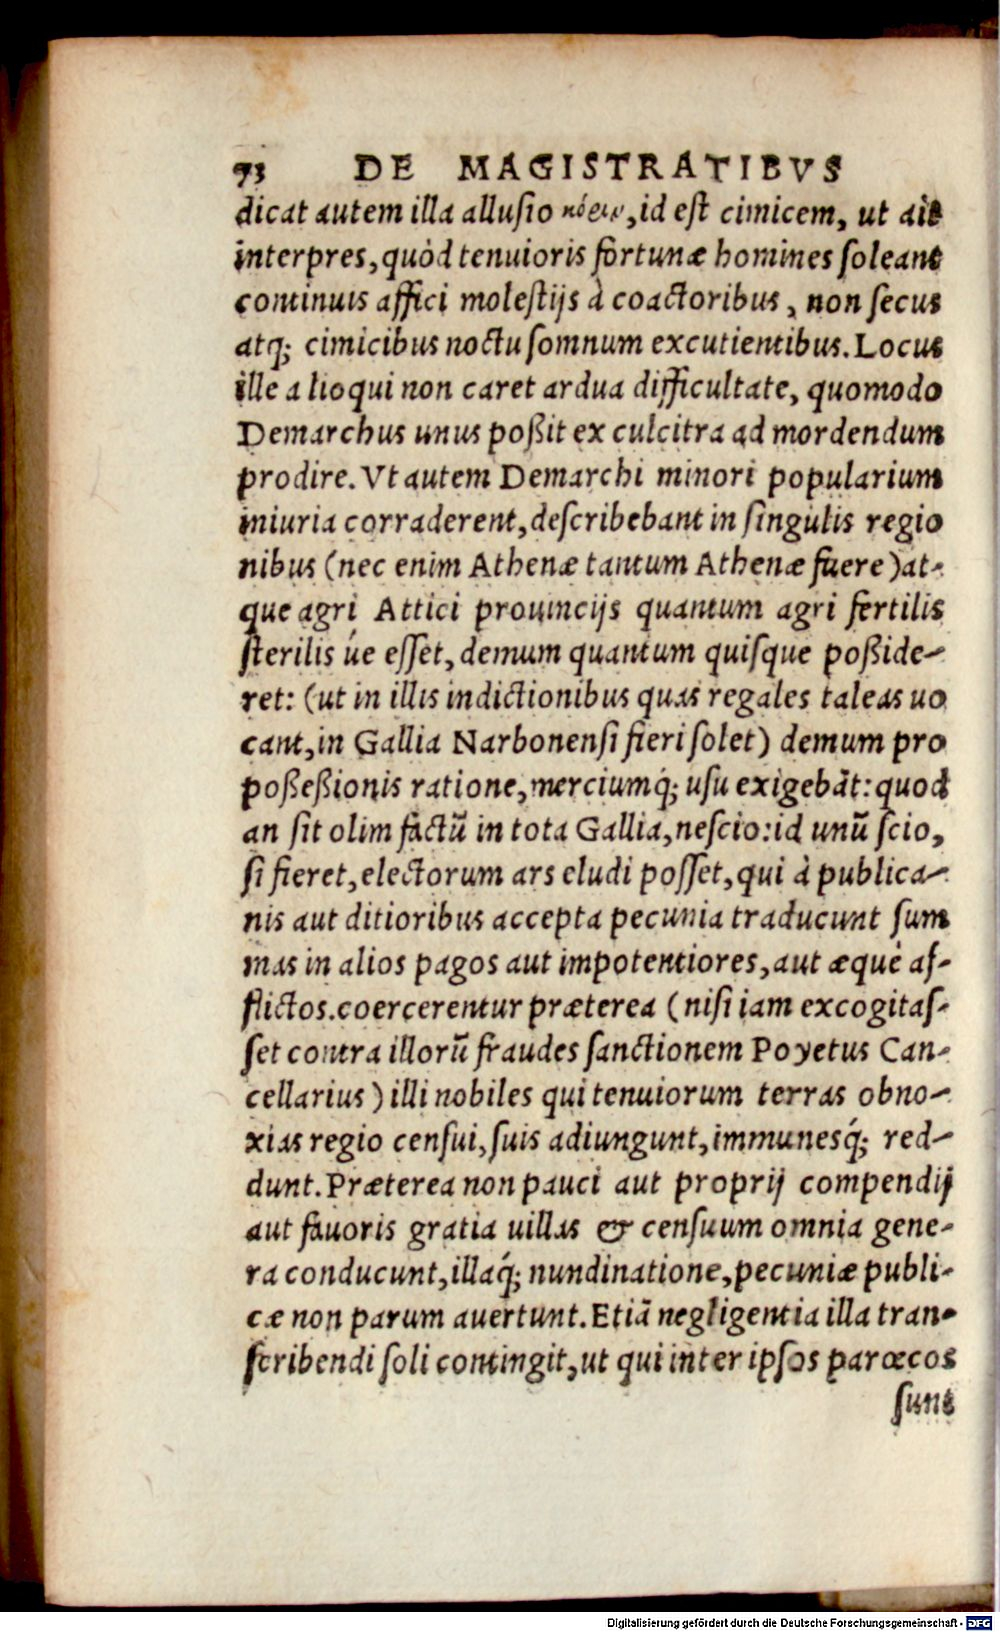 73 DE MAGISTRATIBVS
dicat autem illa allusio κόειν, id est cimicem, ut ait
interpres, quòd tenuioris fortunæ homines soleant
continuis affici molestijs à coactoribus, non secus
atq; cimicibus noctu somnum excutientibus. Locus
ille alioqui non caret ardua difficultate, quomodo
Demarchus unus poßit ex culcitra ad mordendum
prodire. Vt autem Demarchi minori popularium
iniuria corraderent, describebant in singulis regio
nibus (nec enim Athenæ tantum Athenæ fuere) at-
que agri Attici prouincijs quantum agri fertilis
sterilis ue esset, demum quantum quisque poßide-
ret: (ut in illis indictionibus quas regales taleas uo
cant, in Gallia Narbonensi fieri solet) demum pro
poßeßionis ratione, merciumq́; usu exigebāt: quod
an sit olim factū in tota Gallia, nescio: id unū scio,
si fieret, electorum ars eludi posset, qui à publica-
nis aut ditioribus accepta pecunia traducunt sum
mas in alios pagos aut impotentiores, aut æquè af-
flictos. coercerentur præterea (nisi iam excogitas-
set contra illorū fraudes sanctionem Poyetus Can-
cellarius) illi nobiles qui tenuiorum terras obno-
xias regio censui, suis adiungunt, immunesq́; red-
dunt. Præterea non pauci aut proprij compendij
aut fauoris gratia uillas & censuum omnia gene-
ra conducunt, illaq́; nundinatione, pecuniæ publi-
cæ non parum auertunt. Etiā negligentia illa tran-
scribendi soli contingit, ut qui inter ipsos parœcos
sunt
Digitalisierung gefördert durch die Deutsche Forschungsgemeinschaft - DFG